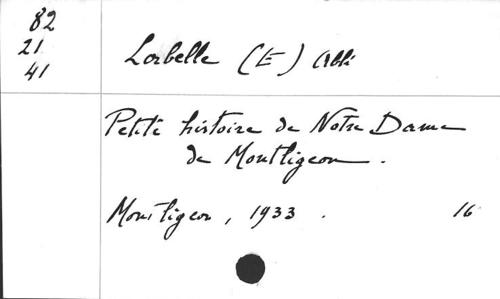 82
21
41
Lorbelle (E) Abbé
Petite histoire de Notre Dame
de Montligeon.
Montligeon, 1933. 16